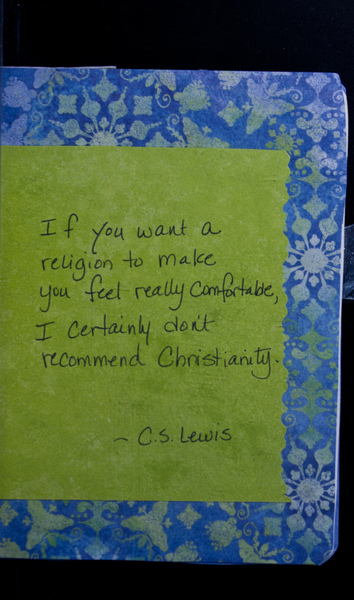 If you want a
religion to make
you feel really comfortable,
I certainly don't
recommend Christianity.
~ C.S. Lewis